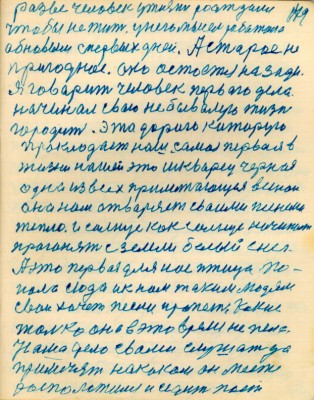 149
разве человек
чтобы не
обновыми спервых дней. А старое не
пригодное. оно остоется назади.
А гаварит человек первого дела
начинал сваю небывалую жизн
городит. Эта дорого каторую
прокладает наш самая первая в
жизни нашей это шкварец черная
одна извсех прилетающая весной
она нам отваряет сваими песнями
тепло. и солнце как солнце начинает
прогонят сземли белый снег.
А это первая для нас птица. По-
пола сюда ик нам таким людям
свои хочет песни пропет, Какие
толко она в это время не пела.
Наше дело сваими слушат да
примечят накаком он месте
росположилис и сидит поёт